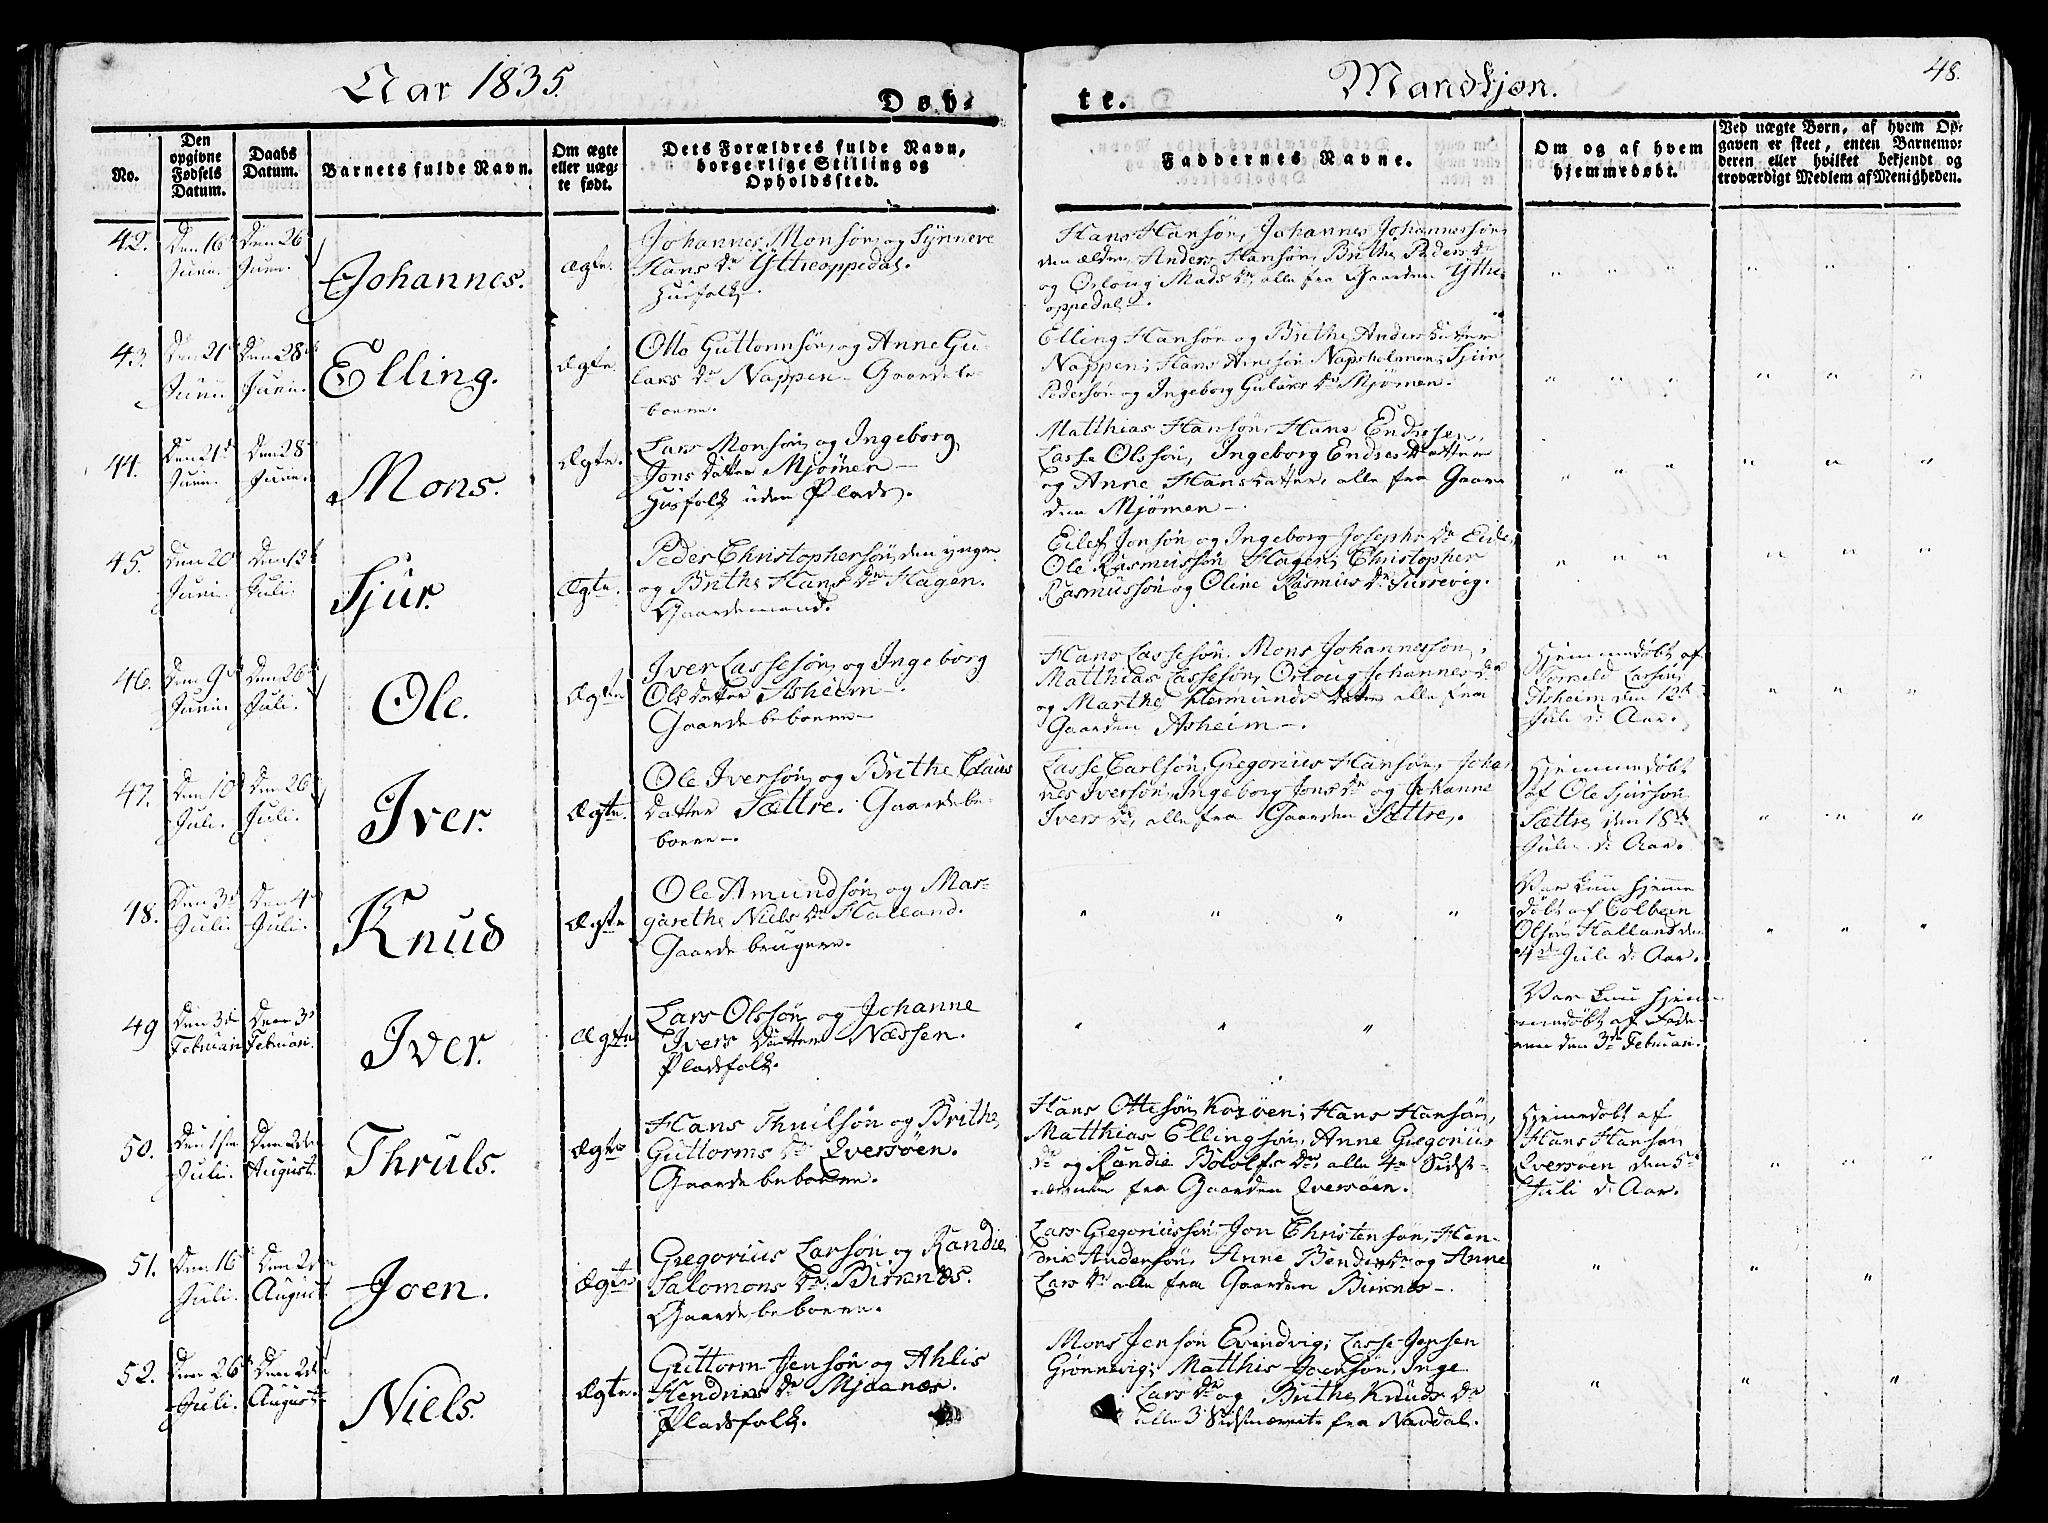 Aar 1835.
Døb-
te.
Mandkjøn.
48.
No.
Den
opgivne
Fødsels
Datum.
Daabs
Datum.
Barnets fulde Navn.
Om ægte
eller uæg-
te født.
Dets Forældres fulde Navn,
borgerlige Stilling og
Opholdssted.
Faddernes Navne.
Om og af hvem
hjemmedøbt.
Ved uægte Børn, af hvem Op-
gaven er skeet, enten Barnemo-
deren eller hvilket bekjendt og
troværdigt Medlem af Menigheden.
42.
Den 16d
Juni.
Den 26d
Juni.
Johannes.
Ægte.
Johannes Monsøn og Synneve
Hans Dr Yttreoppedal.
Husfolk.
Hans Hansøn, Johannes Johannessøn
den ældre, Anders Hansøn, Brithe Peders Dr
og Orloug Mads Dr, alle fra Gaarden Yttre-
oppedal.
43.
Den 21d
Juni.
Den 28d
Juni.
Elling.
Ægte.
Otto Guttormsøn og Anne Gu-
laks Dr Nappen. Gaardbe-
boere.
Elling Hansøn og Brithe Andersdatter
Nappen; Hans Arnesøn Napsholmen; Sjur
Pedersøn og Ingeborg Gulaks Dr Mjømen.
44.
Den 21d
Juni.
Den 28d
Juni.
Mons.
Ægte.
Lars Monsøn og Ingeborg
Jonsdatter Mjømen
Husfolk uden Plads.
Matthias Hansøn, Hans Endresen,
Lasse Olssøn, Ingeborg Endresdatter
og Anne Hansdatter, alle fra Gaar-
den Mjømen.
45.
Den 20d
Juni.
Den 12t
Juli.
Sjur.
Ægte.
Peder Christophersøn den yngre
og Brithe Hans Dr Hagen.
Gaardemand.
Eilef Jonsøn og Ingeborg Josephs Dr Eide,
Ole Rasmussøn Hagen; Christopher
Rasmussøn og Oline Rasmus Dr Surrevig.
46.
Den 9d
Juni.
Den 26d
Juli.
Ole.
Ægte
Iver Lassesøn og Ingeborg
Olsdatter Asheim.
Gaardbeboere
Hans Lassesøn, Mons Johannessøn,
Matthias Lassesøn, Orloug Johannes Dr
og Marthe Hermunds Datter alle fra
Gaarden Asheim.
Hjemmedøbt af
Lassøn
Asheim den 12t
Juli d. Aar.
47.
Den 10d
Juli.
Den 26d
Juli.
Iver.
Ægte.
Ole Iversøn og Brithe Claus
Datter Sættre. Gaardbe-
boere.
Lasse Carlsøn, Gregorius Hansøn, Johan-
nes Iversøn, Ingeborg Jons Dr og Johanne
Ivers Dr, alle fra Gaarden Sættre.
Hjemmedøbt
af Ole Sjursøn
Sættre den 18de
Juli d. Aar.
48.
Den 3d
Juli.
Den 4d
Juli.
Knud
Ægte
Ole Amundsøn og Mar-
garethe Niels Dr Halland.
Gaardbrugere.
Var kun hjemme
døbt af Colbein
Olsøn Halland den
4de Juli d. Aar.
49
Den 3d
Februari
Den 3d
Februari.
Iver.
Ægte
Lars Olssøn og Johanne
Ivers Datter Næssen.
Pladsfolk.
Var kun hjem-
medøbt af Fade-
ren den 3de Februari.
50.
Den 1ste
Juli.
Den 2den
August.
Thruls.
Ægte
Hans Thrulsøn og Brithe
Guttorms Dr Qversøen.
Gaardbeboere.
Hans Ottesøn Korsøen; Hans Hansøn,
Matthias Ellingsøn, Anne Gregorius
Dr og Randie Botolfs Dr, alle 4re Sidst-
nævnte fra Gaarden Qversøen.
Hjemedøbt af
Hans Hansøn
Qversøen den 5d
Juli d. Aar.
51.
Den 16d
Juli.
Den 2den
August.
Joen.
Ægte
Gregorius Larsøn og Randie
Salomons Dr Birknæs.
Gaardbeboere.
Lars Gregoriussøn, Jon Christensøn, Hen-
drik Andersøn, Anne Bendix Dr og Anne
Lars Dr alle fra Gaarden Birknæs.
52.
Den 26d
Juli.
Den 2den
August.
Niels.
Ægte.
Guttorm Jensøn og Ahlis
Hendriks Dr Mjaanæs.
Pladsfolk.
Mons Jensøn Evindvig; Lasse Jensen
Grønnevig; Matthis Joensøn, Inge
Lars Dr og Brithe Knuds Dr
alle 3 Sidstnævnte fra Nardal.